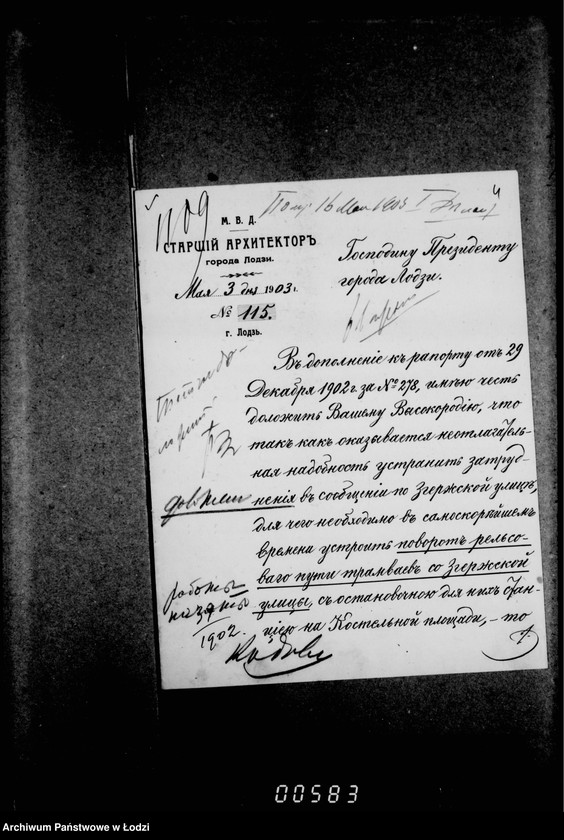 1109
4
М. В. Д.
СТАРШІЙ АРХИТЕКТОРЪ
города Лодзи.
Мая 3 дня 1903 г.
№ 115.
г. Лодзь.
Господину Президенту
города Лодзи.
Въ дополненіе къ рапорту отъ 29
Декабря 1902 г. за № 278, имѣю честь
доложить Вашему Высокородію, что
такъ какъ оказывается неотлагатель-
ная надобность устранить затруд-
ненія въ сообщеніи по Згержской улицѣ,
для чего необходимо въ самоскорѣйшемъ
времени устроить поворотъ рельсо-
ваго пути трамваевъ со Згержской
улицы, съ остановочною для нихъ стан-
ціею на Костельной площади, - то
1902.
00583
Archiwum Państwowe w Łodzi